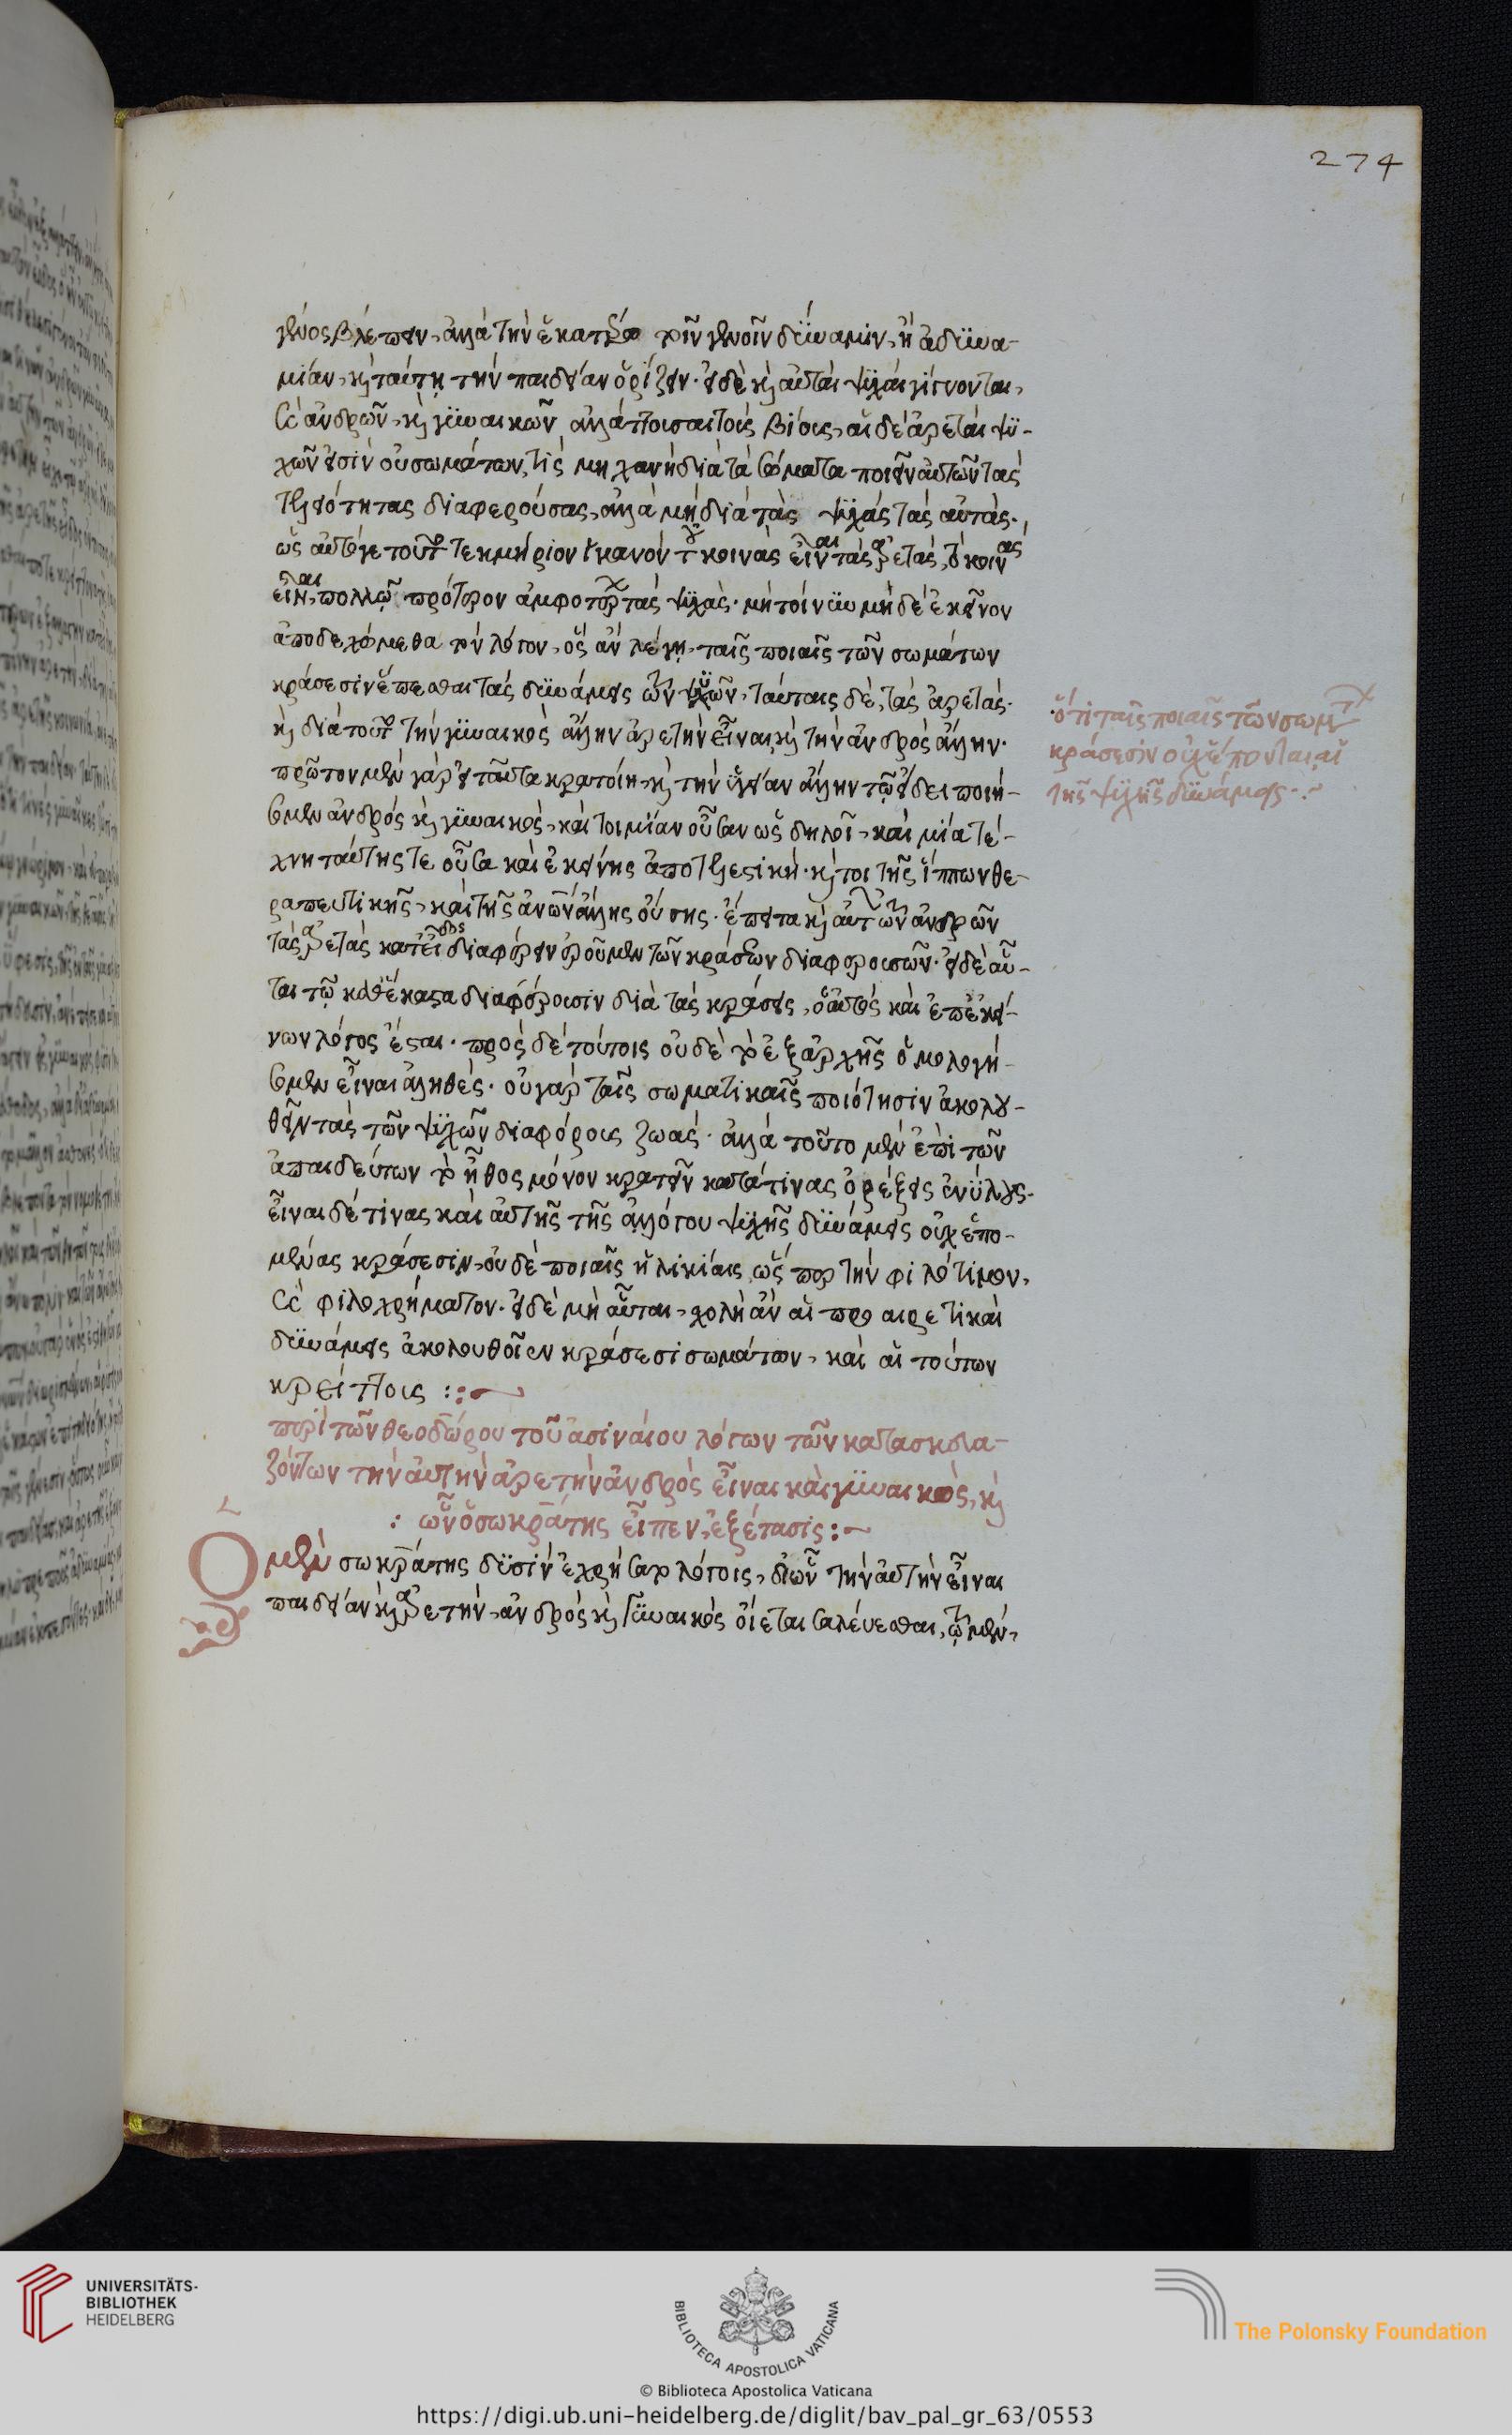 274
γένος βλέπειν, ἀλλὰ τὴν ἑκατέρου τοῖν γενοῖν δύναμιν, ἢ ἀδυνα-
μίαν, καὶ ταύτῃ τὴν παιδείαν ὁρίζειν. εἰ δὲ καὶ αὗται ψυχαὶ γίγνονται,
καὶ ἀνδρῶν, καὶ γυναικῶν ἀλλάττουσαι τοὺς βίους, αἱ δὲ ἀρεταὶ ψυ-
χῶν εἰσὶν οὐ σωμάτων, τίς μηχανὴ διὰ τὰ σώματα ποιεῖν αὐτῶν τὰς
τελειότητας διαφερούσας, ἀλλὰ μὴ διὰ τὰς ψυχὰς τὰς αὐτάς.
ὡς αὐτό γε τοῦτο τεκμήριον ἱκανὸν τοῦ κοινὰς εἶναι τὰς ἀρετάς, τὸ κοινὰς
εἶναι, πολλῷ πρότερον ἀμφοτέρων τὰς ψυχάς. μὴ τοίνυν μηδὲ ἐκεῖνον
ἀποδεχώμεθα τὸν λόγον, ὃς ἂν λέγῃ, ταῖς ποιαῖς τῶν σωμάτων
κράσεσιν ἕπεσθαι τὰς δυνάμεις τῶν ψυχῶν, ταύταις δὲ, τὰς ἀρετάς.
καὶ διὰ τοῦτο τὴν γυναικὸς ἄλλην ἀρετὴν εἶναι, καὶ τὴν ἀνδρὸς ἄλλην.
πρῶτον μὲν γὰρ εἰ ταῦτα κρατοίη, καὶ τὴν ὑγείαν ἄλλην τῷ εἴδει ποιή-
σομεν ἀνδρός καὶ γυναικός, καίτοι μίαν οὖσαν ὡς δηλοῖ, καὶ μία τέ-
χνη ταύτης τε οὖσα καὶ ἐκείνης ἀποτελεστική. καίτοι τῆς ἵππων θε-
ραπευτικῆς, καὶ τῆς ἀνθρώπων ἄλλης οὔσης. ἔπειτα καὶ αὐτῶν τῶν ἀνδρῶν
τὰς ἀρετὰς κατ' εἶδος διαφέρειν ἐροῦμεν τῶν κράσεων διαφερουσῶν. εἰ δὲ αὗ-
ται τῷ καθέκαστα διαφέρουσιν διὰ τὰς κράσεις, ὁ αὐτὸς καὶ ἐπ' ἐκεί-
νων λόγος ἔσται. πρὸς δὲ τούτοις οὐδὲ τὸ ἐξαρχῆς ὁμολογή-
σομεν εἶναι ἀληθές. οὐ γὰρ ταῖς σωματικαῖς ποιότησιν ἀκολου-
θεῖν τὰς τῶν ψυχῶν διαφόρους ζωάς. ἀλλὰ τοῦτο μὲν ἐπὶ τῶν
ἀπαιδεύτων τὸ ἦθος μόνον κρατεῖν κατά τινας ὀρέξεις ἐνύλους.
εἶναι δέ τινας καὶ αὐτῆς τῆς ἀλόγου ψυχῆς δυνάμεις οὐχ ἑπο-
μένας κράσεσιν, οὐδὲ ποιαῖς ἡλικίαις, ὥσπερ τὴν φιλότιμον,
καὶ φιλοχρήματον. εἰ δὲ μὴ αὗται, σχολῇ ἂν αἱ προαιρετικαὶ
δυνάμεις ἀκολουθοῖεν κράσεσι σωμάτων, καὶ αἱ τούτων
κρείττους :
περὶ τῶν θεοδώρου τοῦ ἀσιναίου λόγων τῶν κατασκευα-
ζόντων τὴν αὐτὴν ἀρετὴν ἀνδρὸς εἶναι καὶ γυναικός, καὶ
: ὧν ὁ σωκράτης εἶπεν, ἐξέτασις :
Ὁ μὲν σωκράτης δυσὶν ἐχρήσατο λόγοις, δι' ὧν τὴν αὐτὴν εἶναι
παιδείαν καὶ ἀρετὴν, ἀνδρός καὶ γυναικός οἴεται
ὅτι ταῖς ποιαῖς τῶν σωμάτων
κράσεσιν οὐχ ἕπονται αἱ
τῆς ψυχῆς δυνάμεις
UNIVERSITÄTS-
BIBLIOTHEK
HEIDELBERG
BIBLIOTECA APOSTOLICA VATICANA
The Polonsky Foundation
© Biblioteca Apostolica Vaticana
https://digi.ub.uni-heidelberg.de/diglit/bav_pal_gr_63/0553